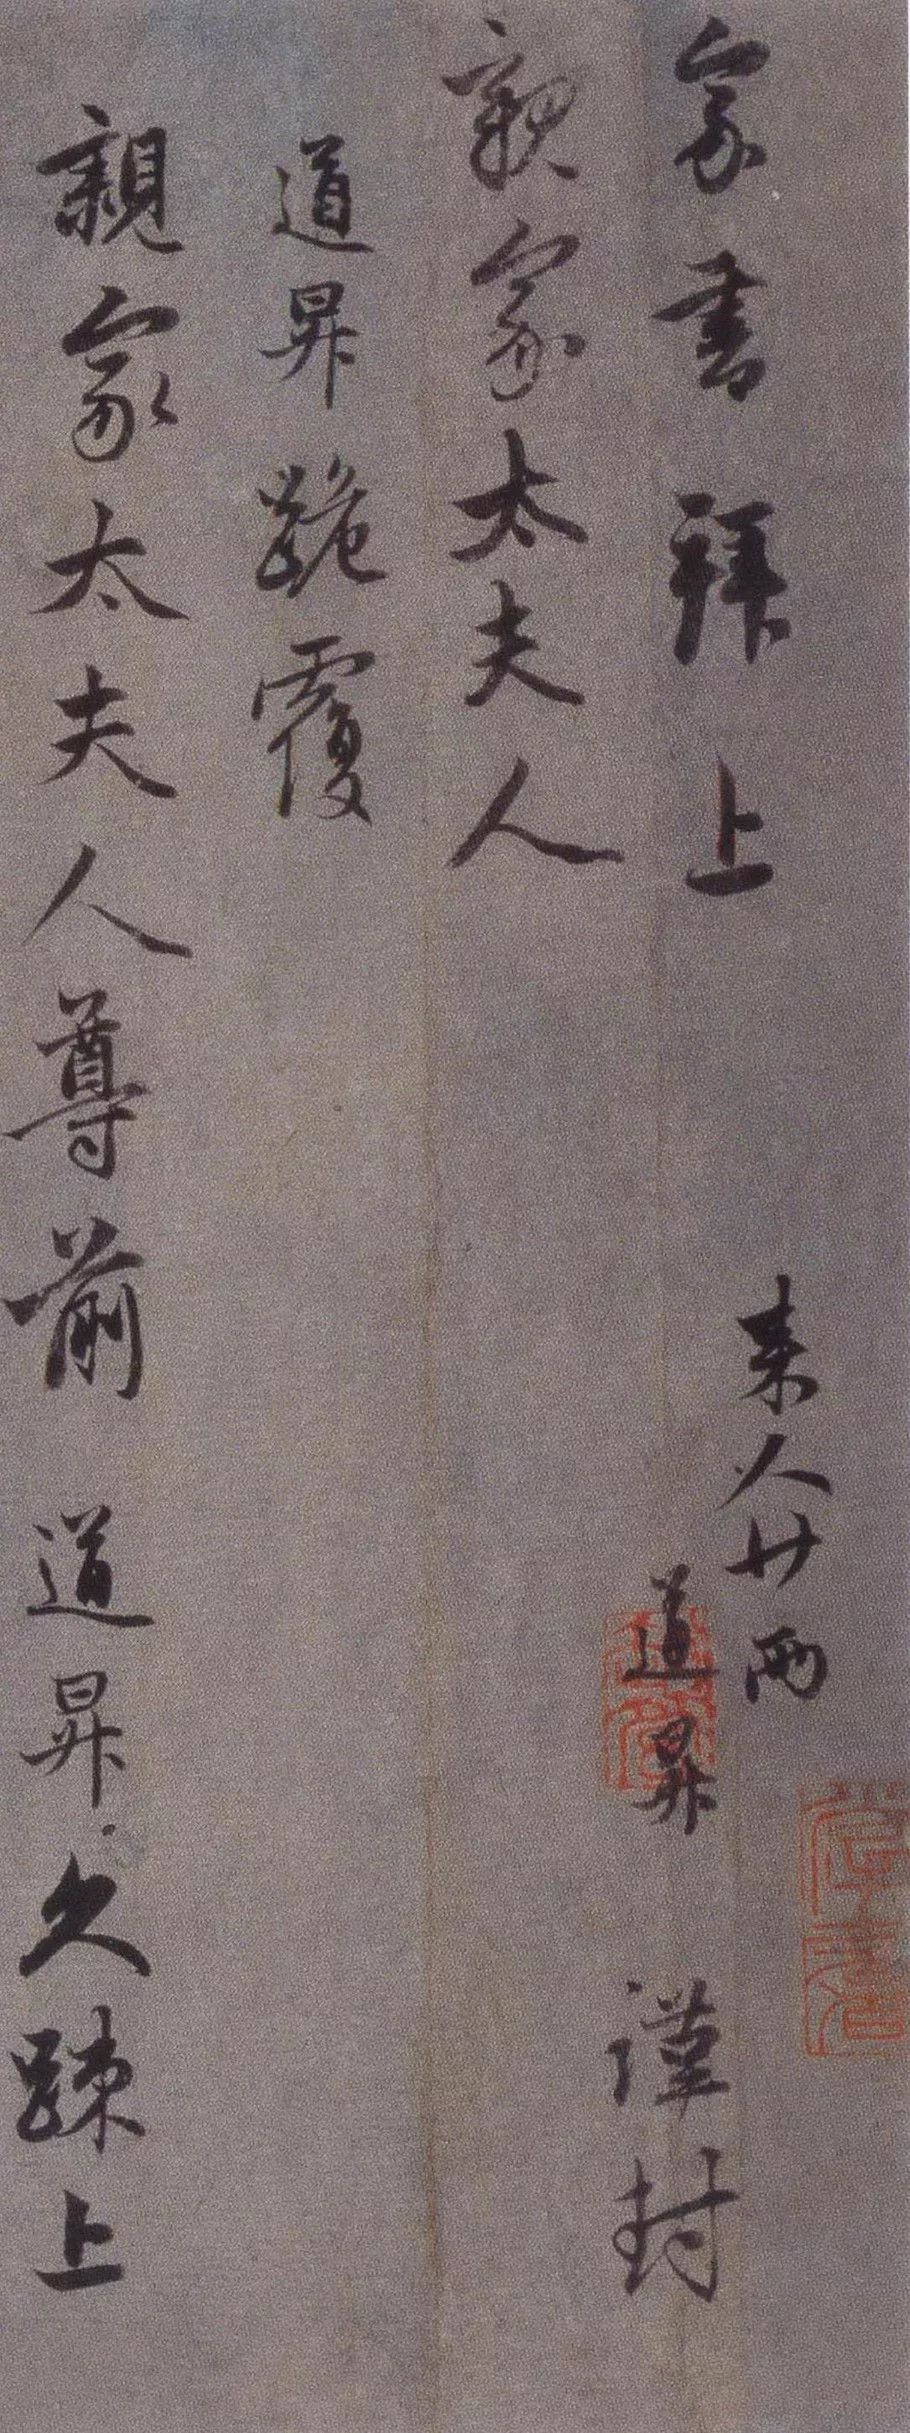 家書拜上
来人廿两
親家太夫人
道昇 謹封
道昇跪覆
親家太夫人尊前 道昇久疎上